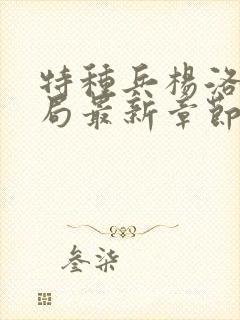 特種兵楊洛
局最新章節
叁柒